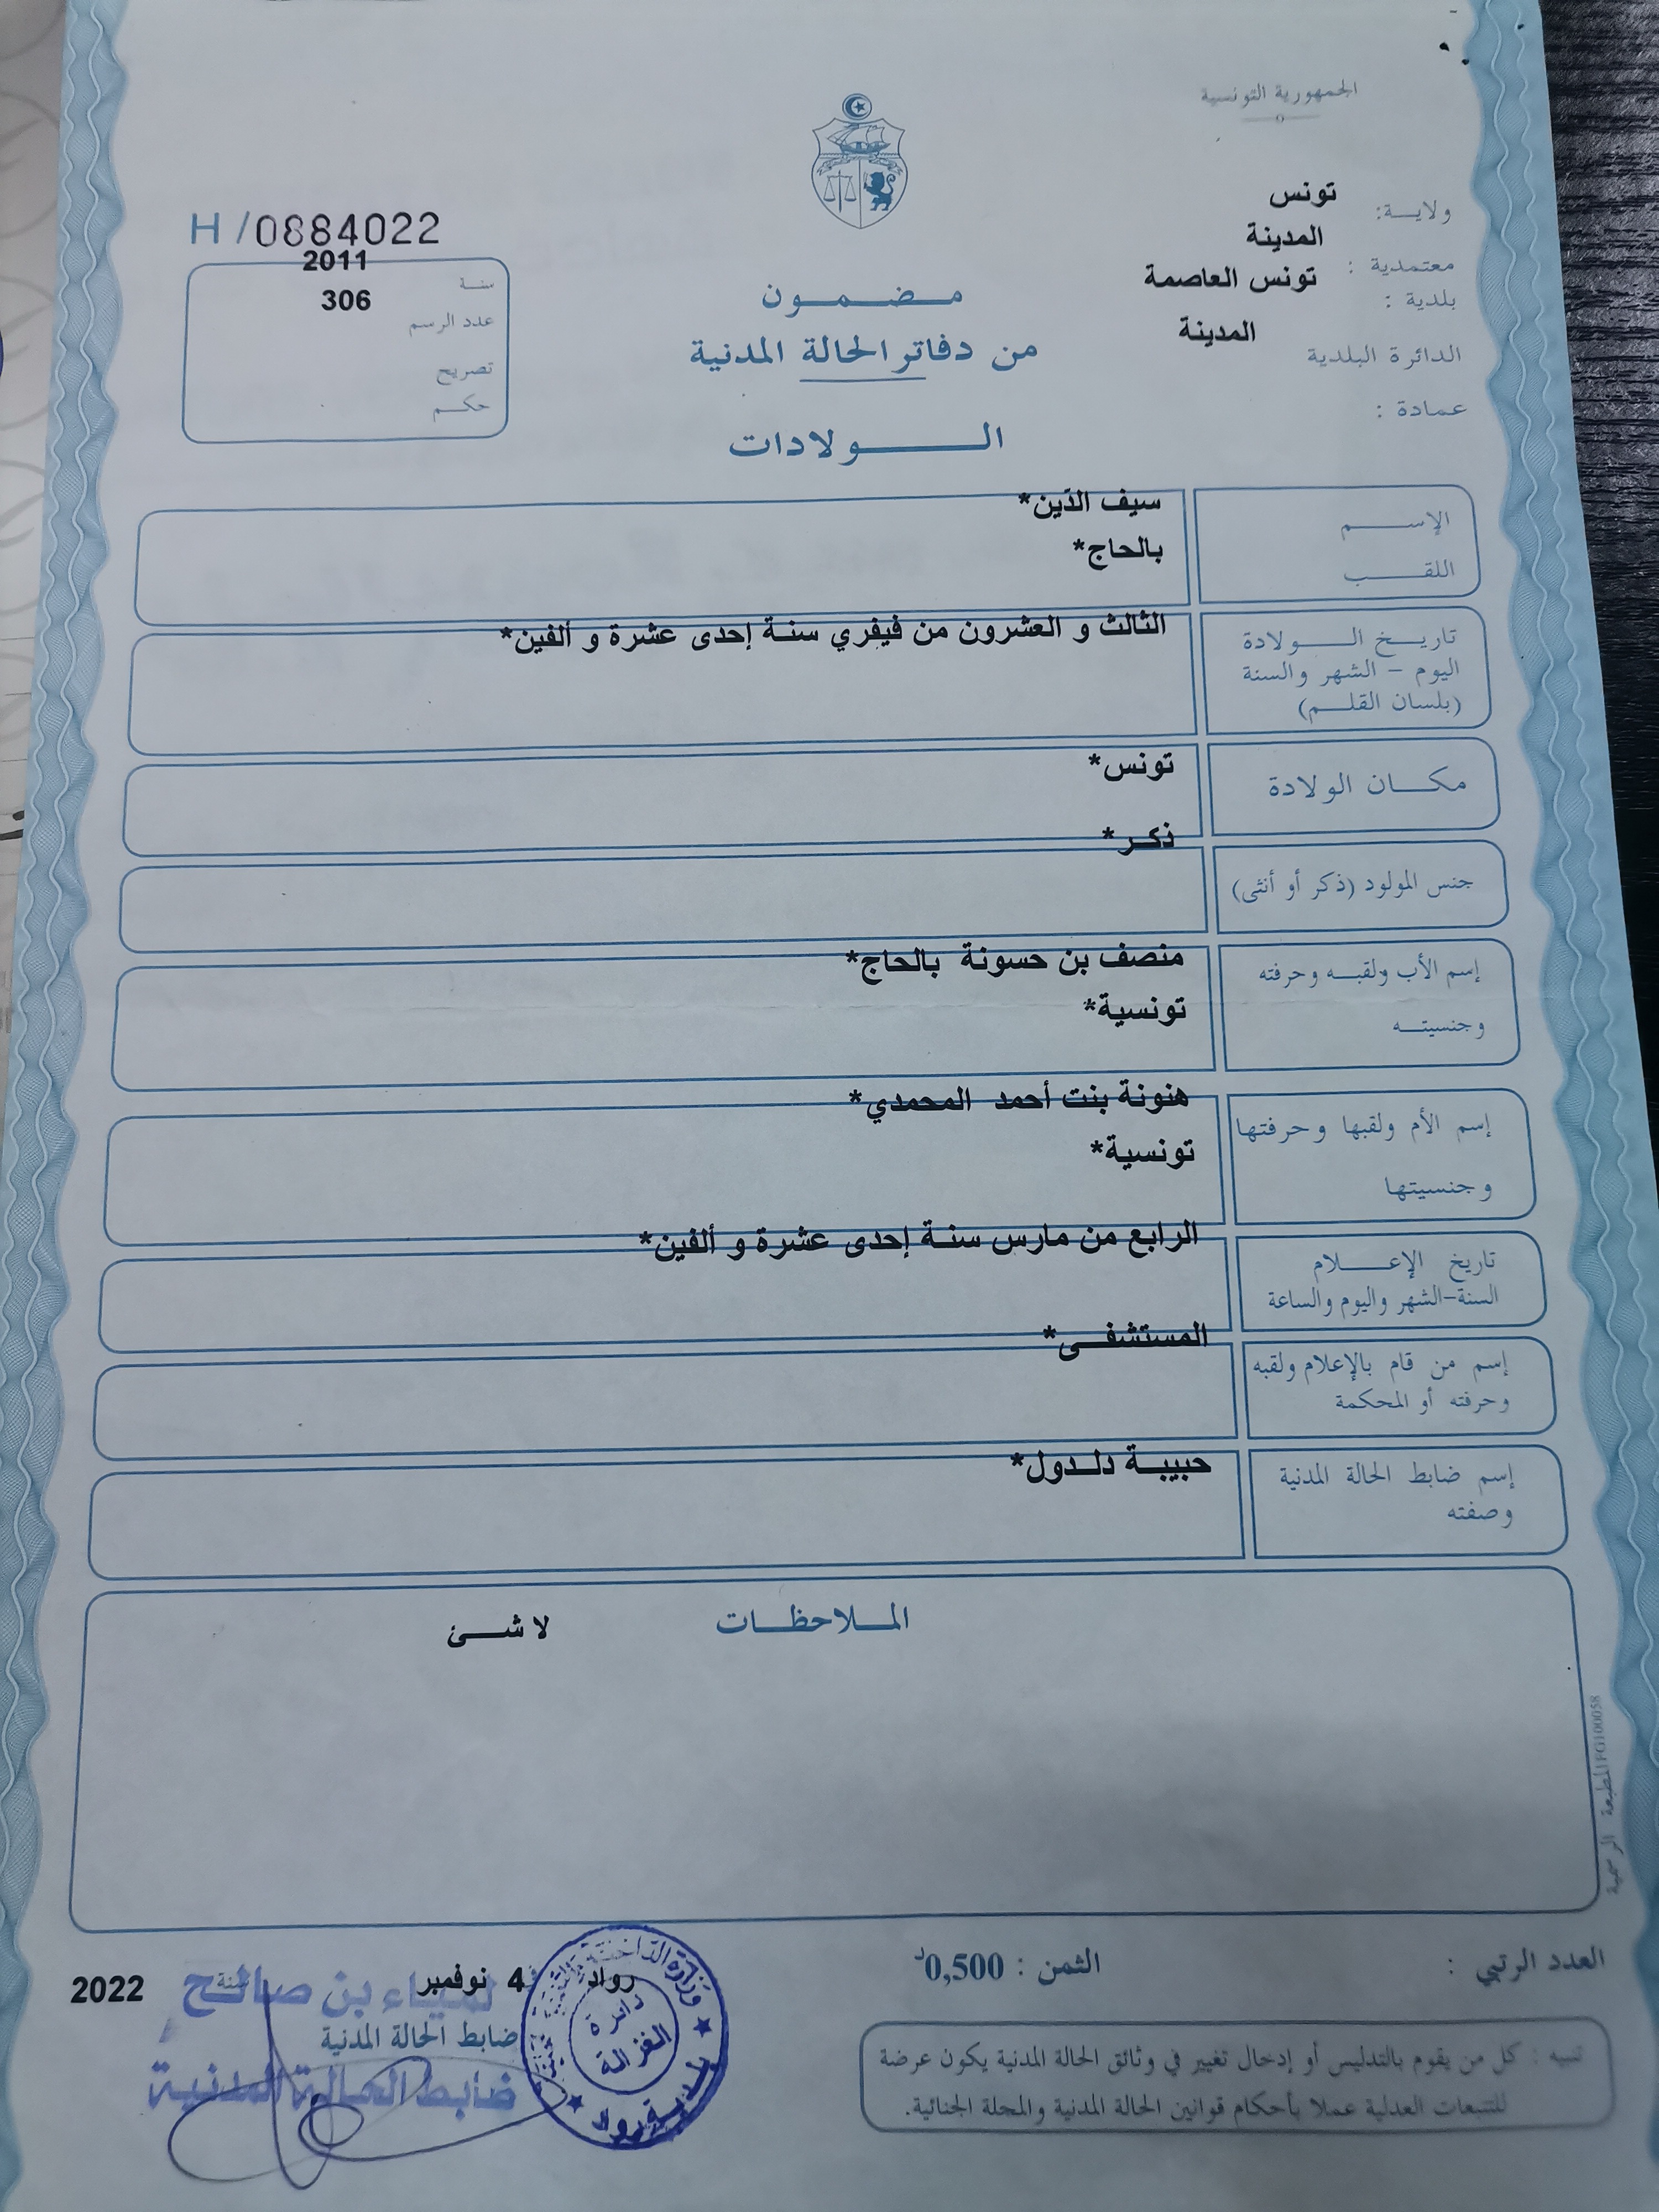 الجمهورية التونسية
ولاية: تونس
معتمدية : المدينة
بلدية : تونس العاصمة
الدائرة البلدية المدينة
عمادة :
H /0884022
سنة 2011
عدد الرسم 306
تصريح
حكم
مضمون
من دفاتر الحالة المدنية
الولادات
الإسم سيف الدّين*
اللقب بالحاج*
تاريخ الولادة الثالث و العشرون من فيفري سنة إحدى عشرة و ألفين*
اليوم - الشهر والسنة
(بلسان القلم)
مكان الولادة تونس*
جنس المولود (ذكر أو أنثى) ذكر*
إسم الأب ولقبه وحرفته منصف بن حسونة بالحاج*
وجنسيته تونسية*
إسم الأم ولقبها وحرفتها هنونة بنت أحمد المحمدي*
وجنسيتها تونسية*
تاريخ الإعلام الرابع من مارس سنة إحدى عشرة و ألفين*
السنة-الشهر واليوم والساعة
إسم من قام بالإعلام ولقبه المستشفى*
وحرفته أو المحكمة
إسم ضابط الحالة المدنية حبيبة دلدول*
وصفته
الملاحظات لا شئ
المطبعة الرسمية FG100058
العدد الرتبي :
الثمن : 0,500د
رواد 4 نوفمبر سنة 2022
لمياء بن صالح
ضابط الحالة المدنية
ضابط الحالة المدنية
دائرة
الغزالة
بلدية رواد
تنبيه : كل من يقوم بالتدليس أو إدخال تغيير في وثائق الحالة المدنية يكون عرضة
للتتبعات العدلية عملا بأحكام قوانين الحالة المدنية والمجلة الجنائية.